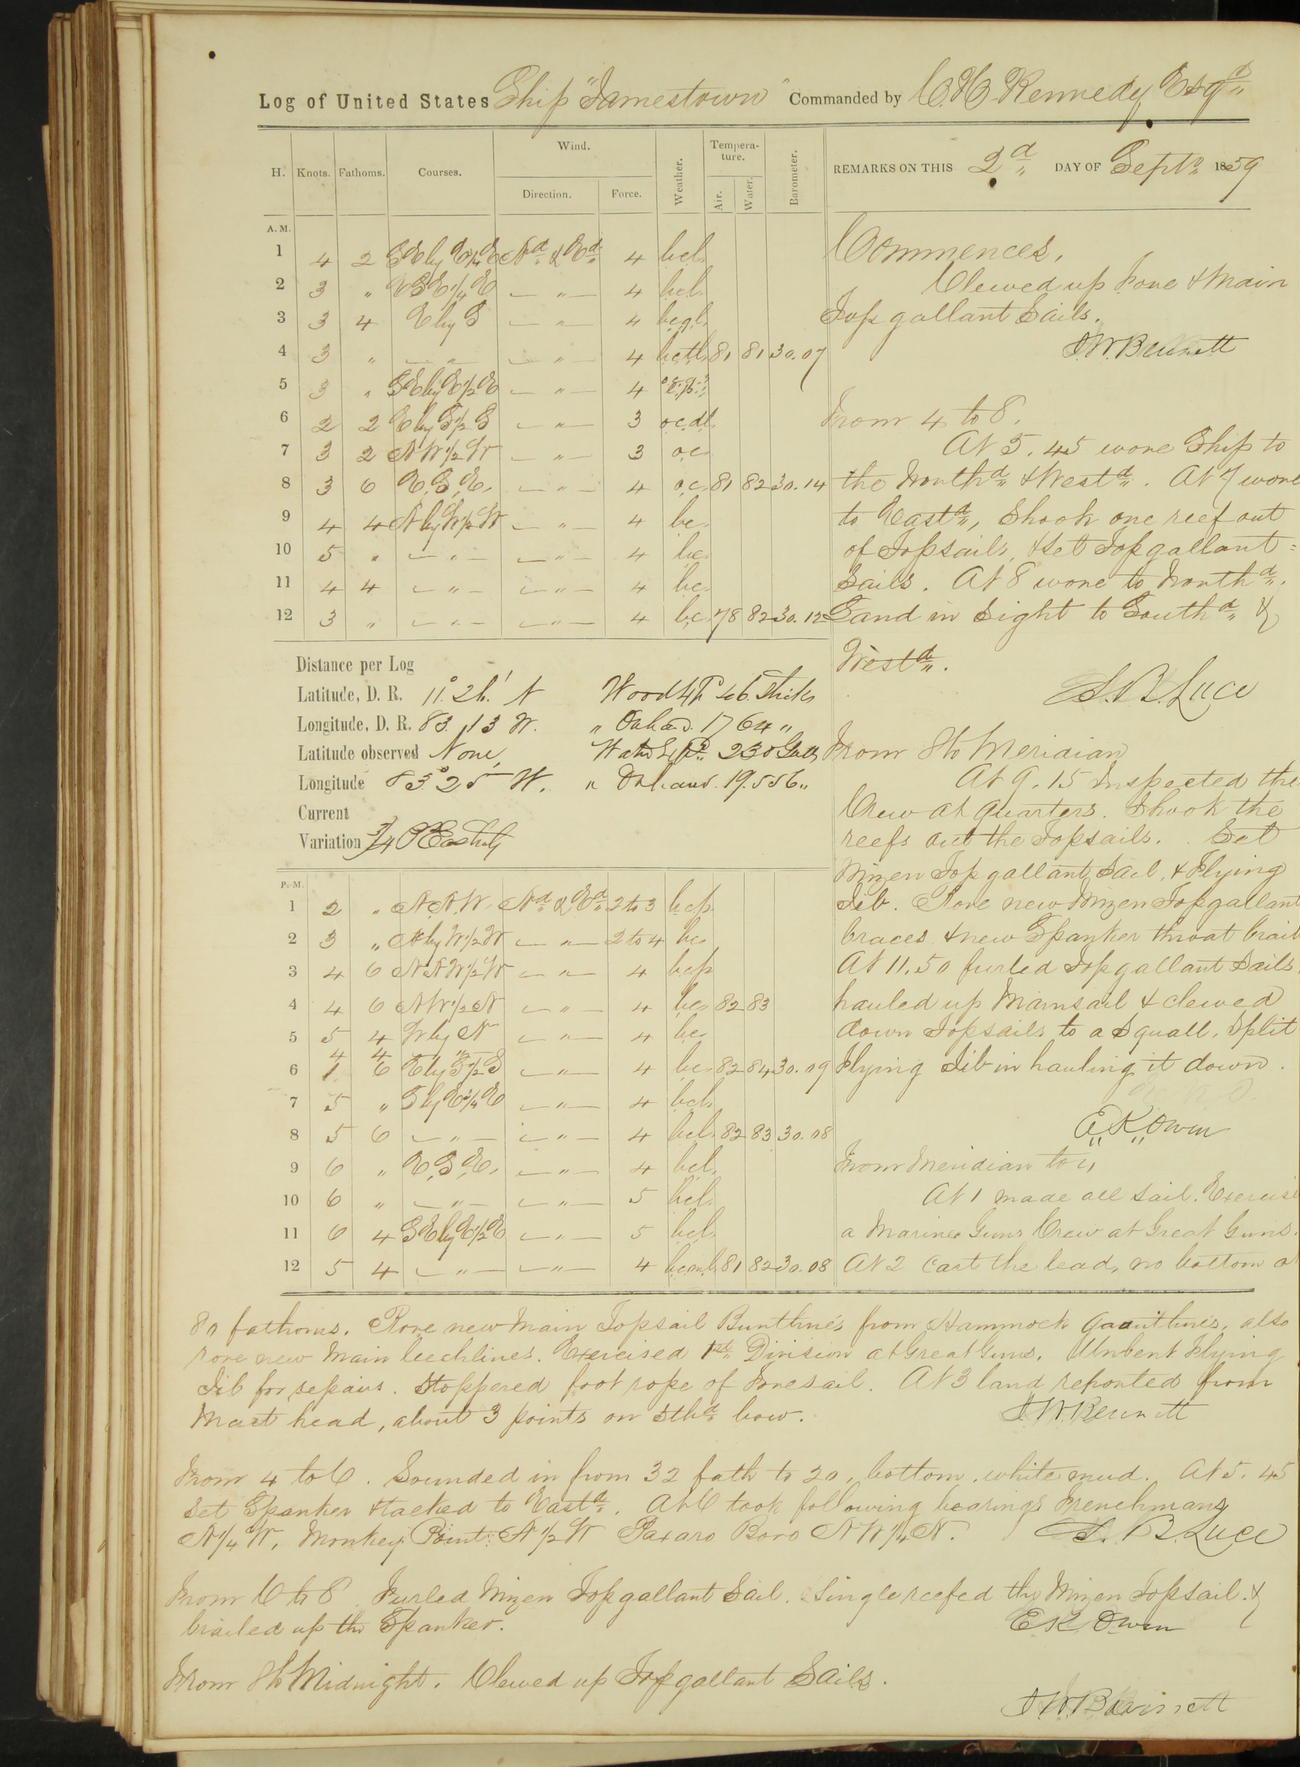 Log of United States Ship "Jamestown" Commanded by C. H. Kennedy Esqr.
H. Knots. Fathoms. Courses. Wind. Direction. Force. Weather. Tempera-ture. Air. Water. Barometer.
REMARKS ON THIS 2d DAY OF Septr 1859
A. M.
1 4 2 SE by E¼E Nd & Ed 4 bcl
2 3 " ESE¼E — " — 4 bcl
3 3 4 E by S — " — 4 bcql
4 3 " — " — — " — 4 bctl 81 81 30.07
5 3 " SE by E½E — " — 4
6 2 2 E by S½S — " — 3 ocdl
7 3 2 NW½W — " — 3 oc
8 3 6 E.S.E. — " — 4 oc 81 82 30.14
9 4 4 N by W½W — " — 4 bc
10 5 " — " — — " — 4 bc
11 4 4 — " — — " — 4 bc
12 3 " — " — — " — 4 bc 78 82 30.12
Commences.
Clewed up Fore & Main
Topgallant Sails.
J.W. Bennett
From 4 to 8.
At 5.45 wore Ship to
the Northd & Westd. At 7 wore
to Eastd, Shook one reef out
of Topsails, & set Topgallant =
Sails. At 8 wore to Northd.
Land in sight to Southd &
Westd.
S. B. Luce
Distance per Log
Latitude, D. R. 11° 26' N
Longitude, D. R. 83. 13 W.
Latitude observed None,
Longitude 83° 25 W.
Current
Variation ¾ P Eastly
Wood Expd 46 Sticks
" On hand. 1764 "
Water Expd 230 Galls
" On hand. 19.556 "
From 8 to Meridian
At 9.15 Inspected the
Crew at quarters. Shook the
reefs out the Topsails. Set
Mizen Topgallant Sail, & Flying
Jib. Rove new Mizen Topgallant
braces & new Spanker throat brail
At 11.50 furled Topgallant Sails,
hauled up Mainsail & clewed
down Topsails to a Squall. Split
Flying Jib in hauling it down.
E. K. Owen
P. M.
1 2 " N.N.W. Nd & Ed 2 to 3 bcp
2 3 " N by W½W — " — 2 to 4 bc
3 4 6 NNW½W — " — 4 bcp
4 4 6 NW½N — " — 4 bc 82 83
5 5 4 W by N — " — 4 bc
4 4 "
6 1 6 E by S½S — " — 4 bc 82 84 30.09
7 5 " S by E¾E — " — 4 bcl
8 5 6 — " — — " — 4 bcl 82 83 30.08
9 6 " E.S.E. — " — 4 bcl
10 6 " — " — — " — 5 bcl
11 6 4 SE by E½E — " — 5 bcl
12 5 4 — " — — " — 4 bcml 81 82 30.08
From Meridian to 4
At 1 made all sail. Exercised
a Marines Guns Crew at Great Guns.
At 2 cast the lead, no bottom at
80 fathoms. Rove new Main Topsail Buntlines from Hammock Gantlines, also
rove new Main leechlines. Exercised 1st Division at Great Guns. Unbent Flying
Jib for repairs. Stoppered foot rope of Foresail. At 3 land reported from
Mast head, about 3 points on Stbd bow.
J. W. Bennett
From 4 to 6. Sounded in from 32 faths to 20, bottom, white mud. At 5.45
set Spanker & tacked to Eastd. At 6 took following bearings Frenchmans
N¼W, Monkey Point N½W Paxaro Bovo NW¼N.
S. B. Luce
From 6 to 8. Furled Mizen Topgallant Sail. Single reefed the Mizen Topsail &
brailed up the Spanker.
E. K. Owen
From 8 to Midnight. Clewed up Topgallant Sails.
J. W. Bennett